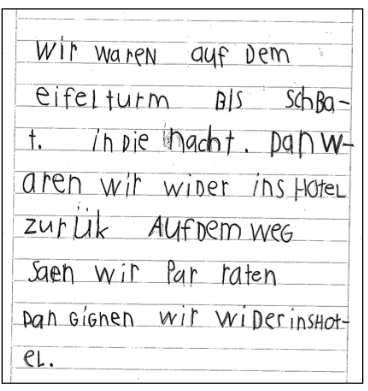 wir waren auf Dem
eifelturm BIS SchBa-
t. in Die nacht. Dan w-
aren wir wider ins Hotel
zurük Auf Dem weG
saen wir Par raten
Dan GiGnen wir wiDer insHot-
eL.